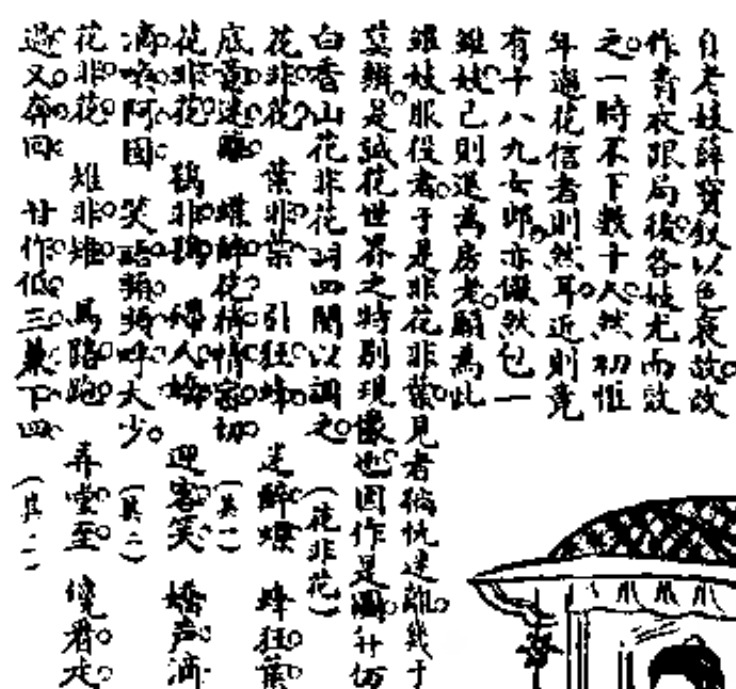 自老妓薛寶釵以色衰故改
作青衣跟局後各妓尤而效
之一時不下數十人然初惟
年邁花信者則然耳近則竟
有十八九女郎亦儼然包一
雛妓己則退為房老願為此
雛妓服役者于是非花非葉見者徜恍迷離幾于
莫辨是誠花世界之特別現像也因作是圖并仿
白香山花非花詞四闋以調之 (花非花)
花非花 葉非葉 引狂蜂 迷醉蝶 蜂狂葉
底意迷離 蝶醉花梢情密切 (其一)
花非花 鴇非鴇 婦人嬌 迎客笑 嬌声滴
滴喚阿囡 笑語頻頻呼大少 (其二)
花非花 雉非雉 馬路跑 弄堂至 僥君走
過又奔回 甘作低三兼下四 (其二)